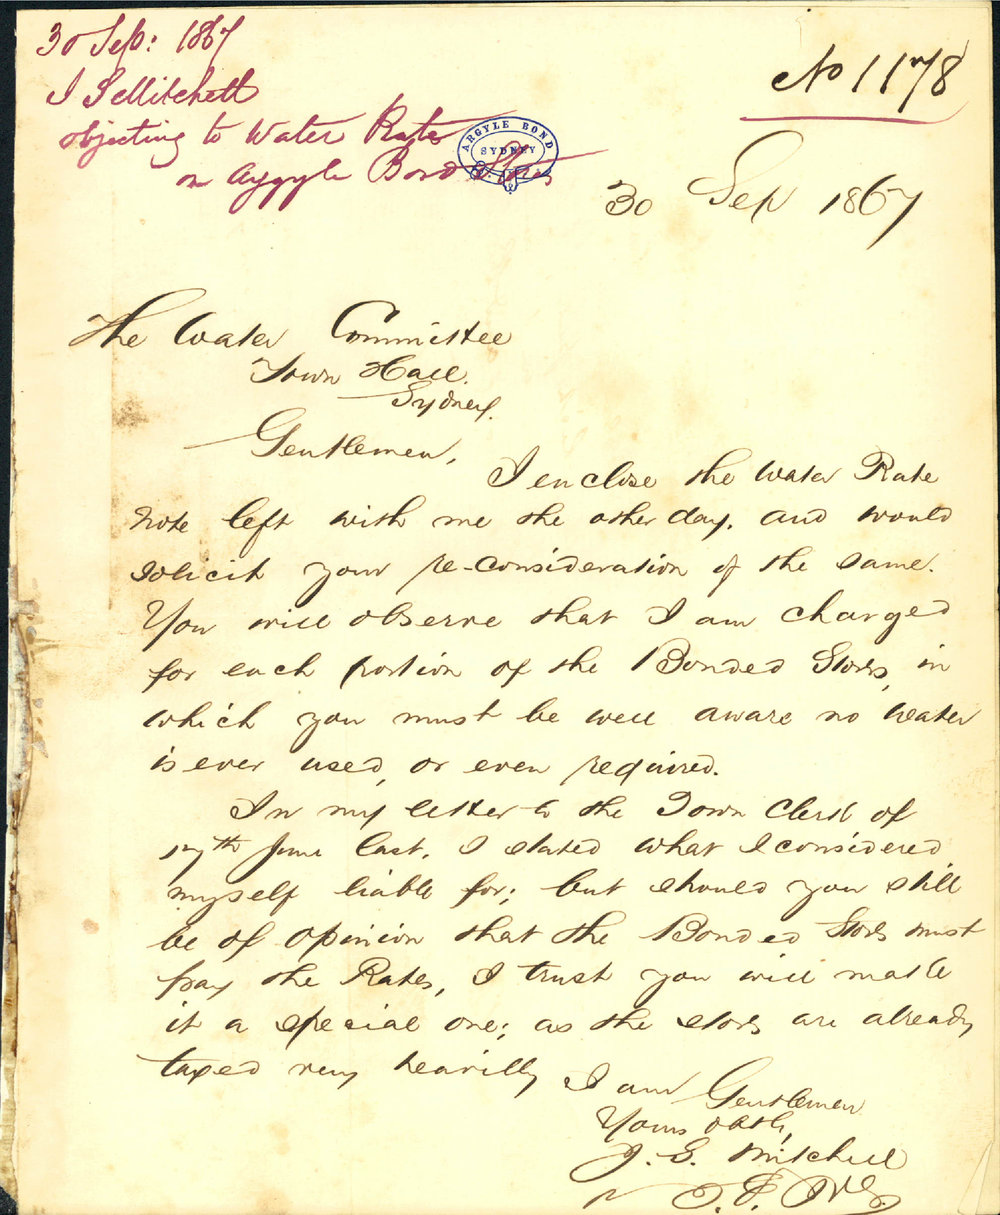 30 Sep: 1867
J S Mitchell
objecting to Water Rate
on Argyle Bond Stores
ARGYLE BOND
SYDNEY
No 1178
30 Sep 1867
The Water Committee
Town Hall.
Sydney.
Gentlemen,
I enclose the Water Rate
Note left with me the other day, and would
solicit your re-consideration of the same.
You will observe that I am charged
for each portion of the Bonded Stores, in
which you must be well aware no water
is ever used, or even required.
In my letter to the Town Clerk of
17th June last, I stated what I considered
myself liable for; but should you still
be of opinion that the Bonded Stores must
pay the Rates, I trust you will make
it a special one; as the stores are already
taxed very heavilly
I am Gentlemen
Yours obtly,
J. S. Mitchell